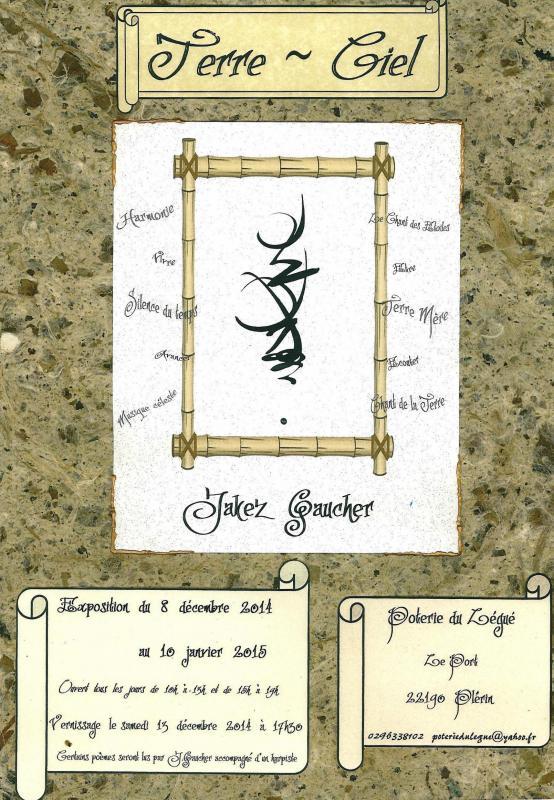 Terre ~ Ciel
Harmonie
Vivre
Silence du temps
Avancer
Musique céleste
Le Chant des Etoiles
Terre Mère
Ecouter
Chant de la Terre
Jakez Gaucher
Exposition du 8 décembre 2014
au 10 janvier 2015
Ouvert tous les jours de 10h à 13h et de 15h à 19h
Vernissage le samedi 13 décembre 2014 à 17h30
Certains poèmes seront lus par J.Gaucher accompagné d'un harpiste
Poterie du Légué
Le Port
22190 Plérin
0296338102 poteriedulegue@yahoo.fr